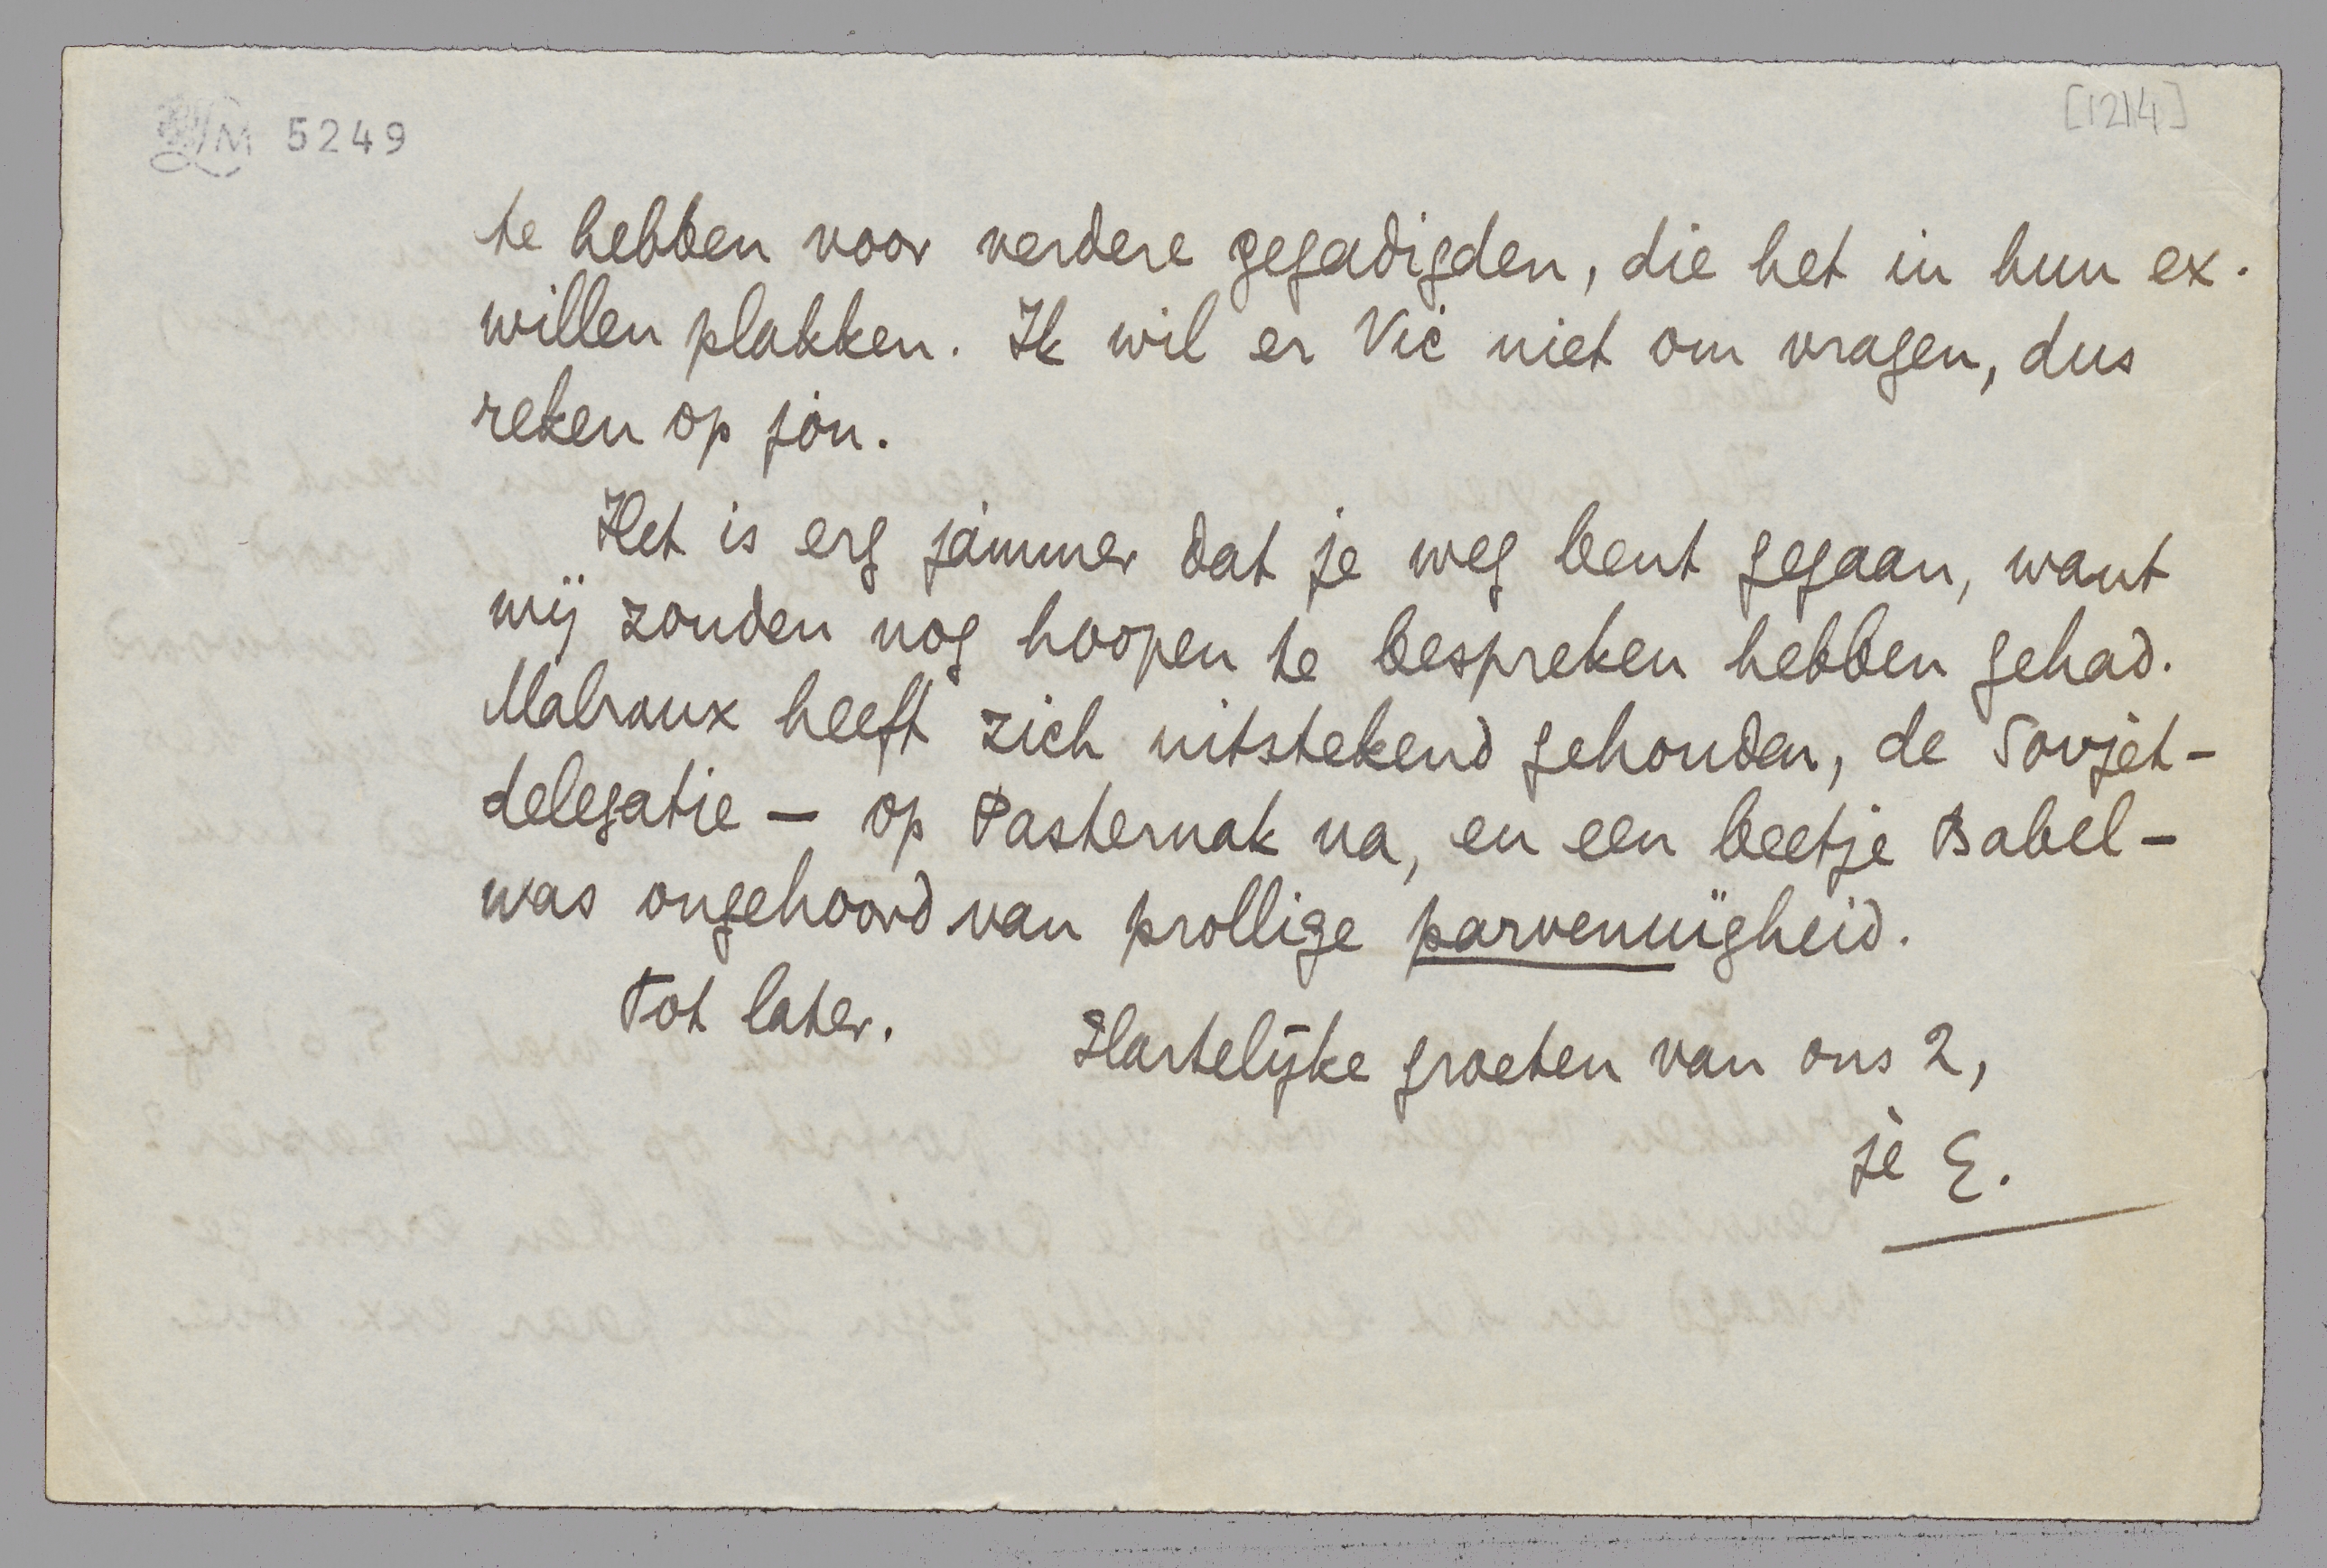 5249
[1214]
te hebben voor verdere gegadigden, die het in hun ex.
willen plakken. Ik wil er Vic niet om vragen, dus
reken op jou.
Het is erg jammer dat je weg bent gegaan, want
wij zouden nog hoopen te bespreken hebben gehad.
Malraux heeft zich uitstekend gehouden, de Sovjet-
delegatie — op Pasternak na, en een beetje Babel —
was ongehoord van prollige parvenuïgheid.
Tot later.
Hartelijke groeten van ons 2,
je E.